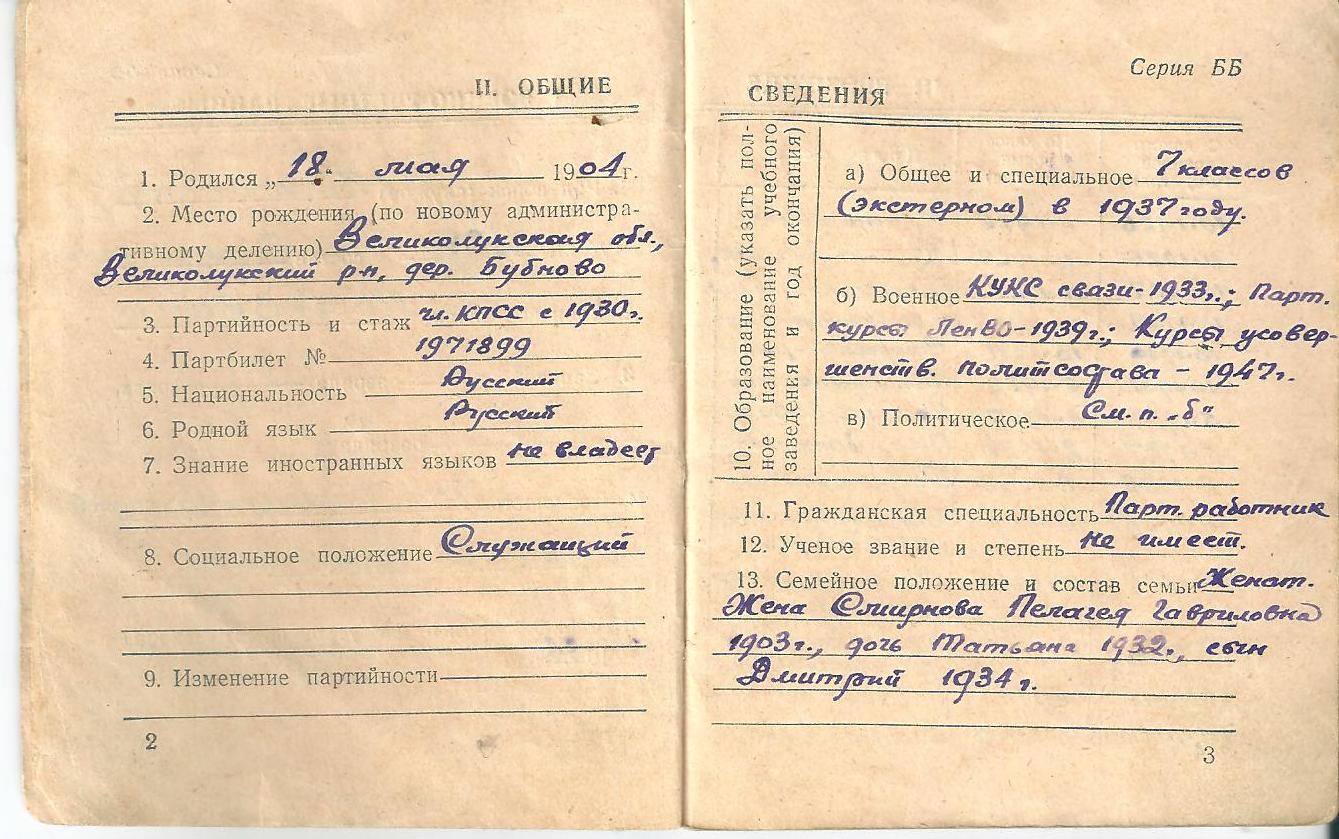 II. ОБЩИЕ
1. Родился „18" мая 1904 г.
2. Место рождения (по новому администра-
тивному делению) Великолукская обл.,
Великолукский р-н, дер. Бубново
3. Партийность и стаж чл. КПСС с 1930 г.
4. Партбилет № 1971899
5. Национальность Русский
6. Родной язык Русский
7. Знание иностранных языков не владеет
8. Социальное положение Служащий
9. Изменение партийности
2
Серия ББ
СВЕДЕНИЯ
10. Образование (указать пол-
ное наименование учебного
заведения и год окончания)
а) Общее и специальное 7 классов
(экстерном) в 1937 году.
б) Военное КУКС связи - 1933г.; Парт.
курсы ЛенВО - 1939 г.; Курсы усовер-
шенств. политсостава - 1947 г.
в) Политическое См. п. „б"
11. Гражданская специальность Парт. работник
12. Ученое звание и степень не имеет.
13. Семейное положение и состав семьи Женат.
Жена Смирнова Пелагея Гавриловна
1903 г., дочь Татьяна 1932г., сын
Дмитрий 1934 г.
3